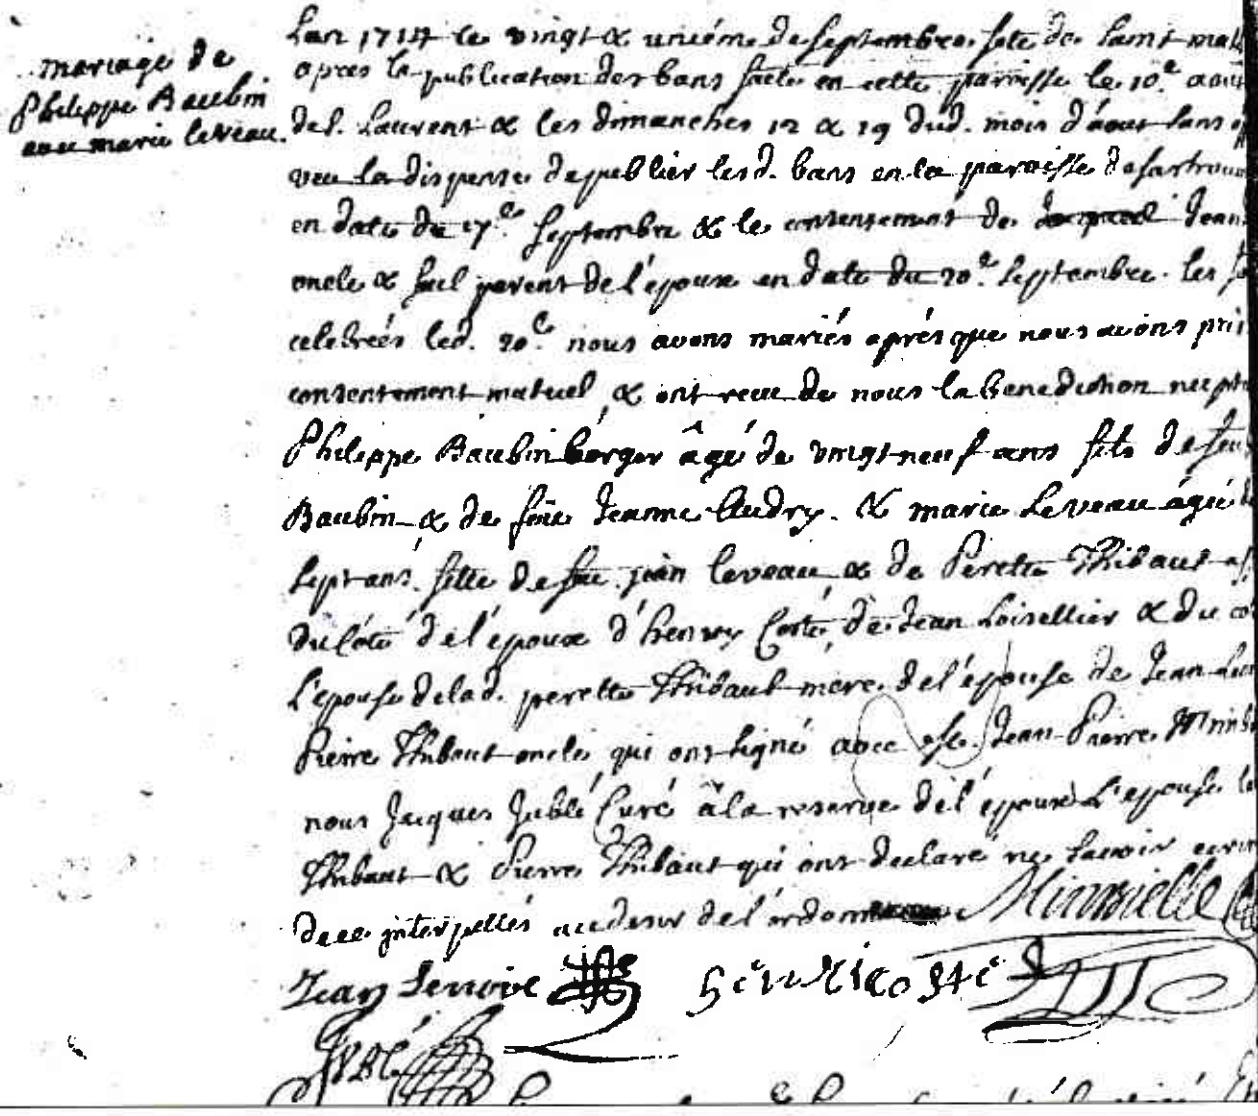 mariage de
Philippe Baubin
avec marie leveau.
Lan 1714 le vingt & uniéme de septembre feste de saint mat
apres la publication des bans faite en cette paroisse le 10e aout
de s. Laurent & les dimanches 12 & 19 dud. mois d'aout sans
veu la dispense de publier lesd. bans en la paroisse de sartrou
en date du 17e septembre & le consentement de Jean
oncle & seul parent de l'epouse en date du 20e septembre. les
celebrées led. 20e nous avons mariés aprés que nous avons pris
consentement mutuel, & ont receu de nous la benediction nupt
Philippe Baubin berger âgé de vingt neuf ans fils de feu
Baubin & de feüe Jeanne Audry. & marie Leveau âgée
sept ans, fille de feu jean leveau & de Perette Thibaut
du côté de l'epoux d'henry Costé, de Jean Loisellier & du co
L'epouse de lad. perette Thibaut mere de l'épouse de Jean
Pierre Thibaut oncle qui ont signé avec Jean Pierre
nous Jacques Jublé Curé à la reserve de l'epoux L'epouse
Thibaut & Pierre Thibaut qui ont declaré ne savoir ecrire
de ce interpellés au desir de l'ordon
Jean Lenoire henri coste
Jublé